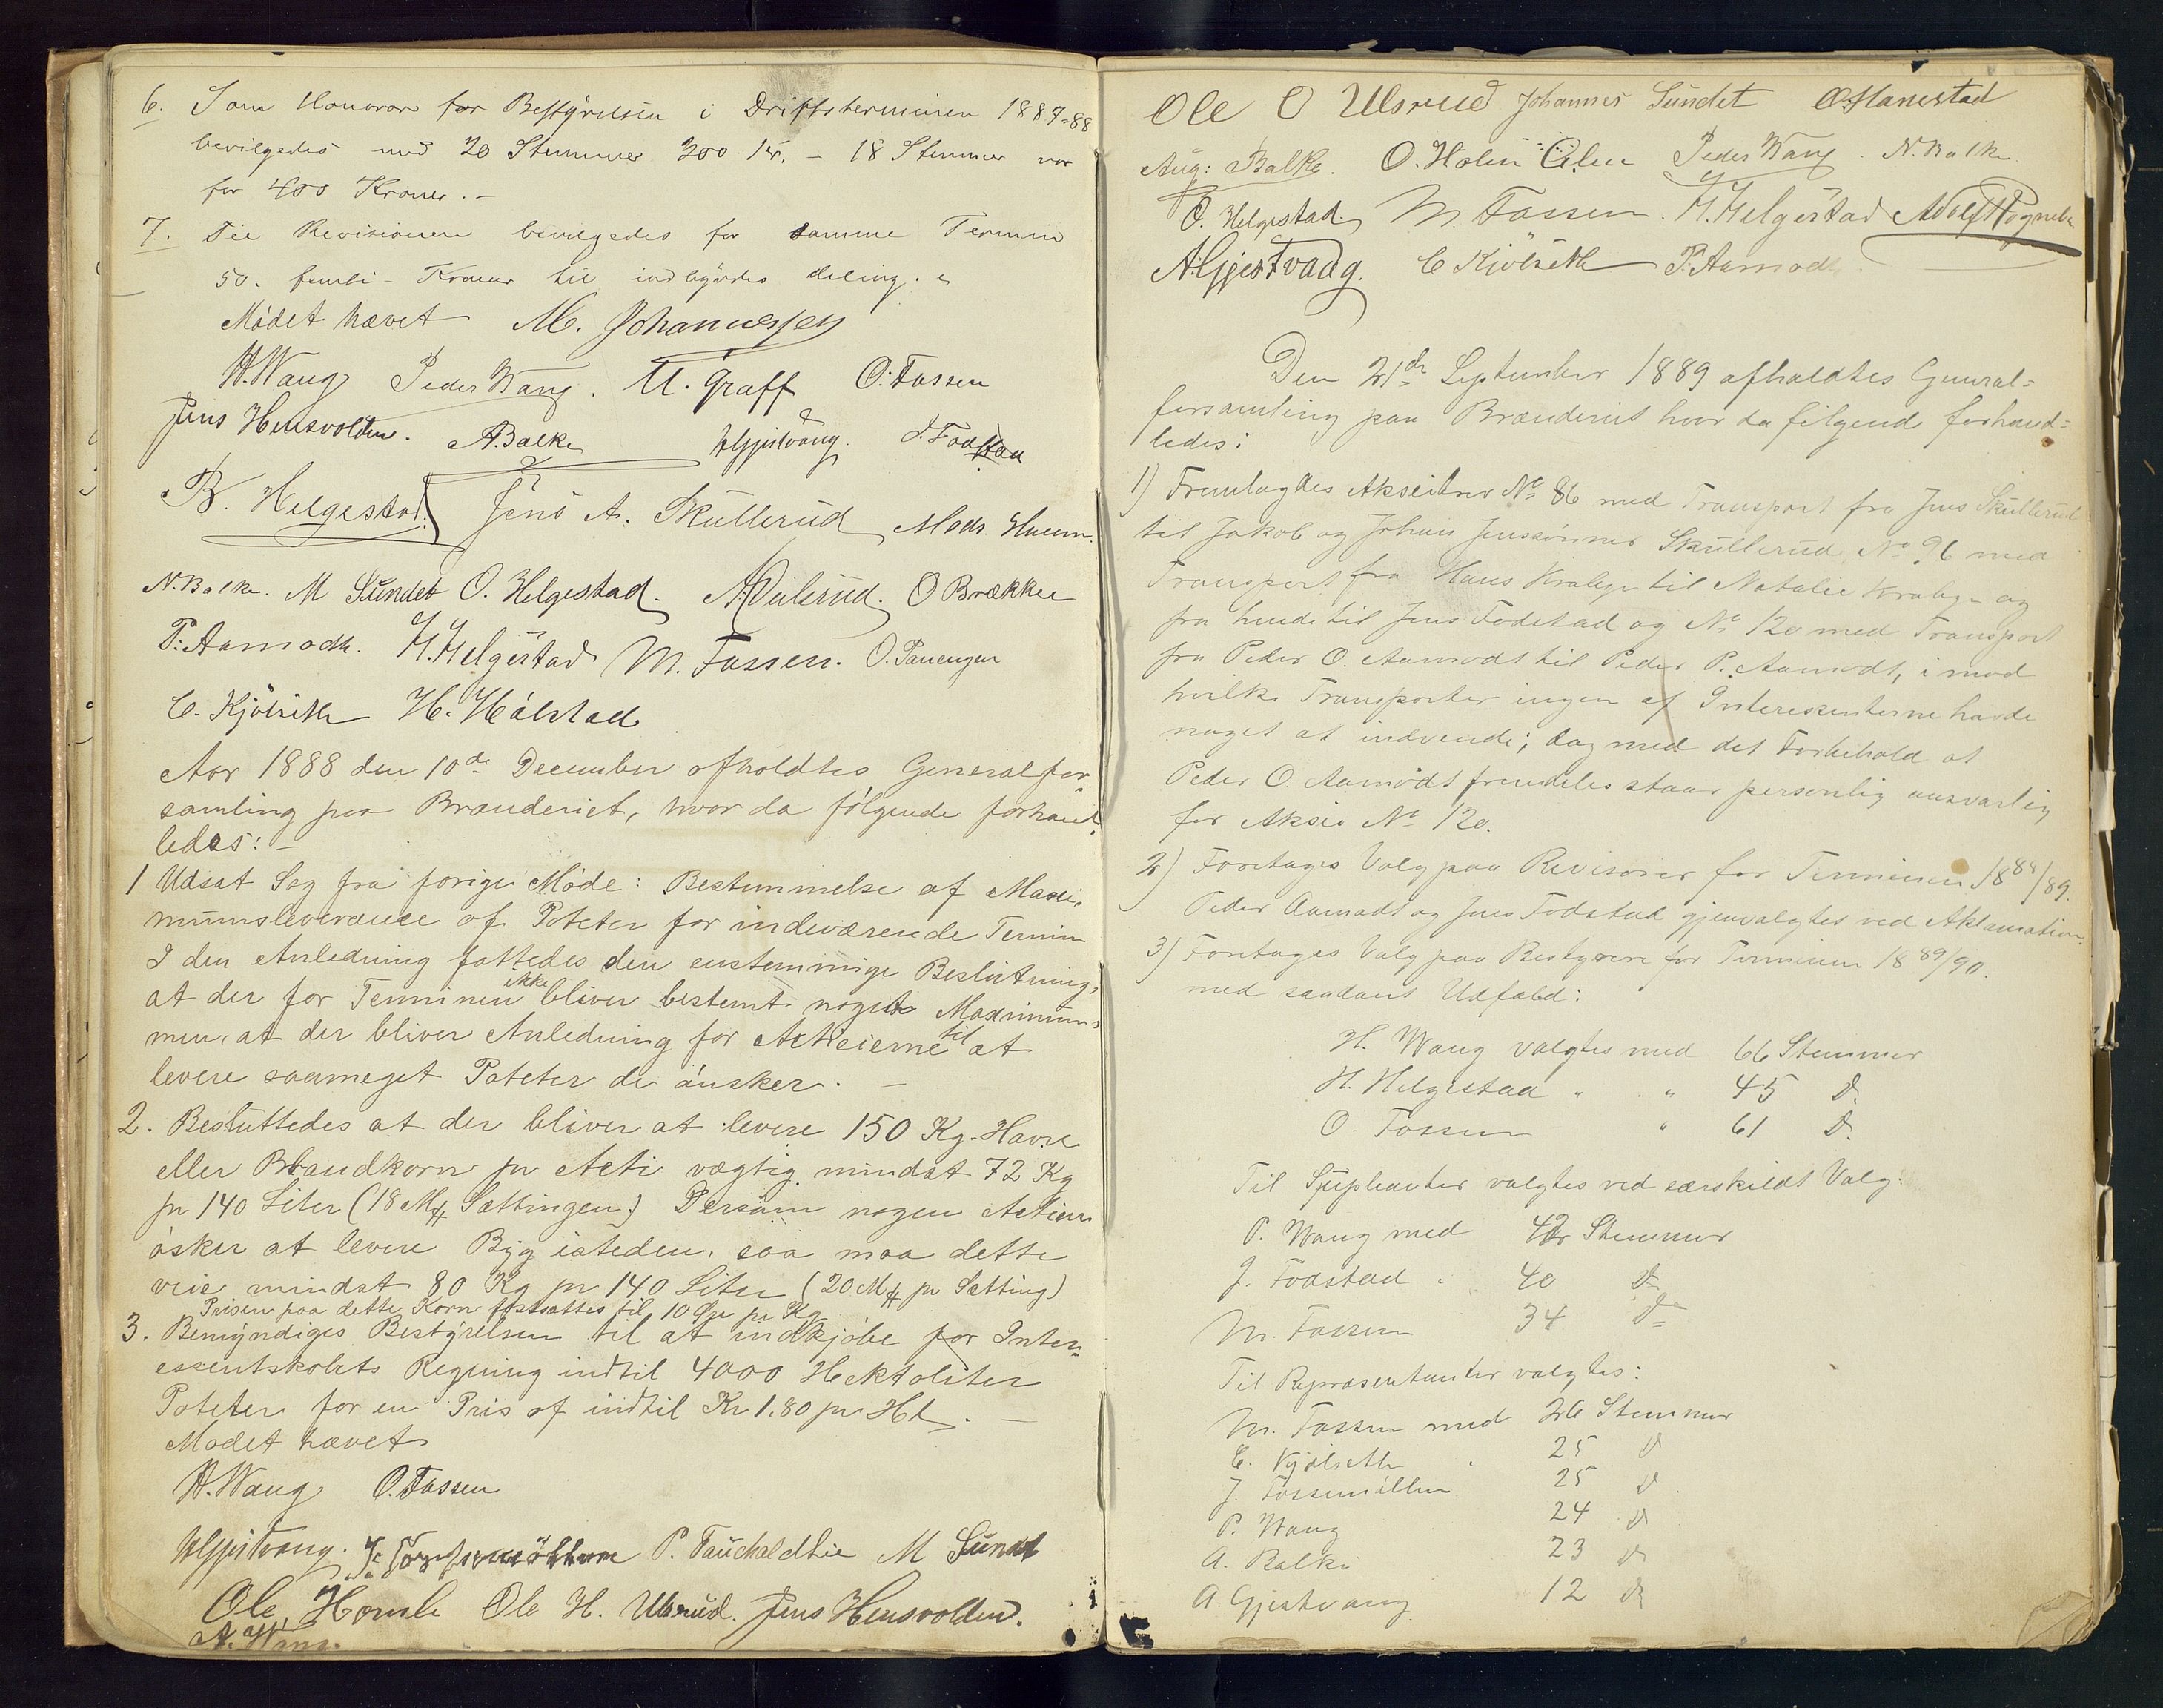 6. Som Honorar for Bestyrelsen i Driftsterminen 1887-88
bevilgedes med 20 Stemmer 300 Kr. - 18 Stemmer var
for 400 Kroner. -
7. Til Revisionen bevilgedes for samme Termin
50. femti - Kroner til indbyrdes deling.
Mödet hævet M. Johannesen
H. Wang Peder Wang. U. Graff O. Fossen
Jens Hensvolden. A. Balke AGjestvang. J. Fodstad
B. Helgestad. Jens A. Skullerud Mads
N. Balke. M Sundet O. Helgestad. O Brække
P. Aamodt. H. Helgestad M. Fossen.
C. Kjölseth H. Hólstad
Aar 1888 den 10de December afholdtes Generalfor-
samling paa Brænderiet, hvor da fólgende forhand-
ledes: -
1 Udsat Sag fra forige Móde: Bestemmelse af Maxi-
mumsleverance af Poteter for indeværende Termin
I den Anledning fattedes den enstemmige Beslutning,
at der for Terminen ikke bliver bestemt noget Maximum,
men at der bliver Anledning for Actieierne til at
levere saameget Poteter de ónsker. -
2. Besluttedes at der bliver at levere 150 Kg. Havre
eller Blandkorn pr Acti vægtig mindst 72 Kg
pr 140 Liter (18 M# Sættingen) Dersom nogen Actieier
ósker at levere Byg isteden, saa maa dette
veie mindst 80 Kg pr 140 Liter (20 M# pr Sætting)
Prisen paa dette Korn fastsættes til 10 Øre pr Kg
3. Bemyndiges Bestyrelsen til at indkjóbe for Inter-
essentskabets Regning indtil 4000 Hektoliter
Poteter for en Pris af indtil Kr 1.80 pr Hl. -
Mødet hævet
H. Wang O. Fossen
AGjestvang. J. Fossemöllen M Sundt
Ole Homle Ole H. Ulsrud. Jens Hensvolden.
Ole O Ulsrud Johannes Sundet O. Hanestad
Aug: Balke. O. Holm Peder Wang. N. Balke
O. Helgestad M. Fossen. H. Helgestad Adolf
A. Gjestvang. C Kjölseth P. Aamodt
Den 21de September 1889 afholdtes General-
forsamling paa Brænderiet hvor da følgende forhand-
ledes:
1) Fremlagdes Akseibrev No 86 med Transport fra Jens Skullerud
til Jakob og Johan Jenssónner Skullerud, No 96 med
Transport fra Hans Krabye til Natalie Krabye og
fra hende til Jens Fodstad og No 120 med Transport
fra Peder O. Aamodt til Peder P. Aamodt, i mod
hvilke Transporter ingen af Interessenterne havde
noget at indvende; dog med det Forbehold at
Peder O Aamodt fremdeles staar personlig ansvarlig
for Aksie No 120.
2) Foretages Valg paa Revisorer for Terminen 1888/89.
Peder Aamodt og Jens Fodstad gjenvalgtes ved Aklamation.
3) Foretages Valg paa Bestyrere for Terminen 1889/90.
med saadant Udfald:
H. Wang valgtes med 66 Stemmer
H. Helgestad " " 45 Do
O. Fossen " 61 Do
Til Supleanter valgtes ved særskildt Valg:
P. Wang med 42 Stemmer
J. Fodstad " 40 Do
M. Fossen 34 Do
Til Repræsentanter valgtes:
M. Fossen med 26 Stemmer
C. Kjólseth " 25 Do
J. Fossemóllen 25 Do
P. Wang 24 Do
A. Balke 23 Do
A. Gjestvang 12 Do